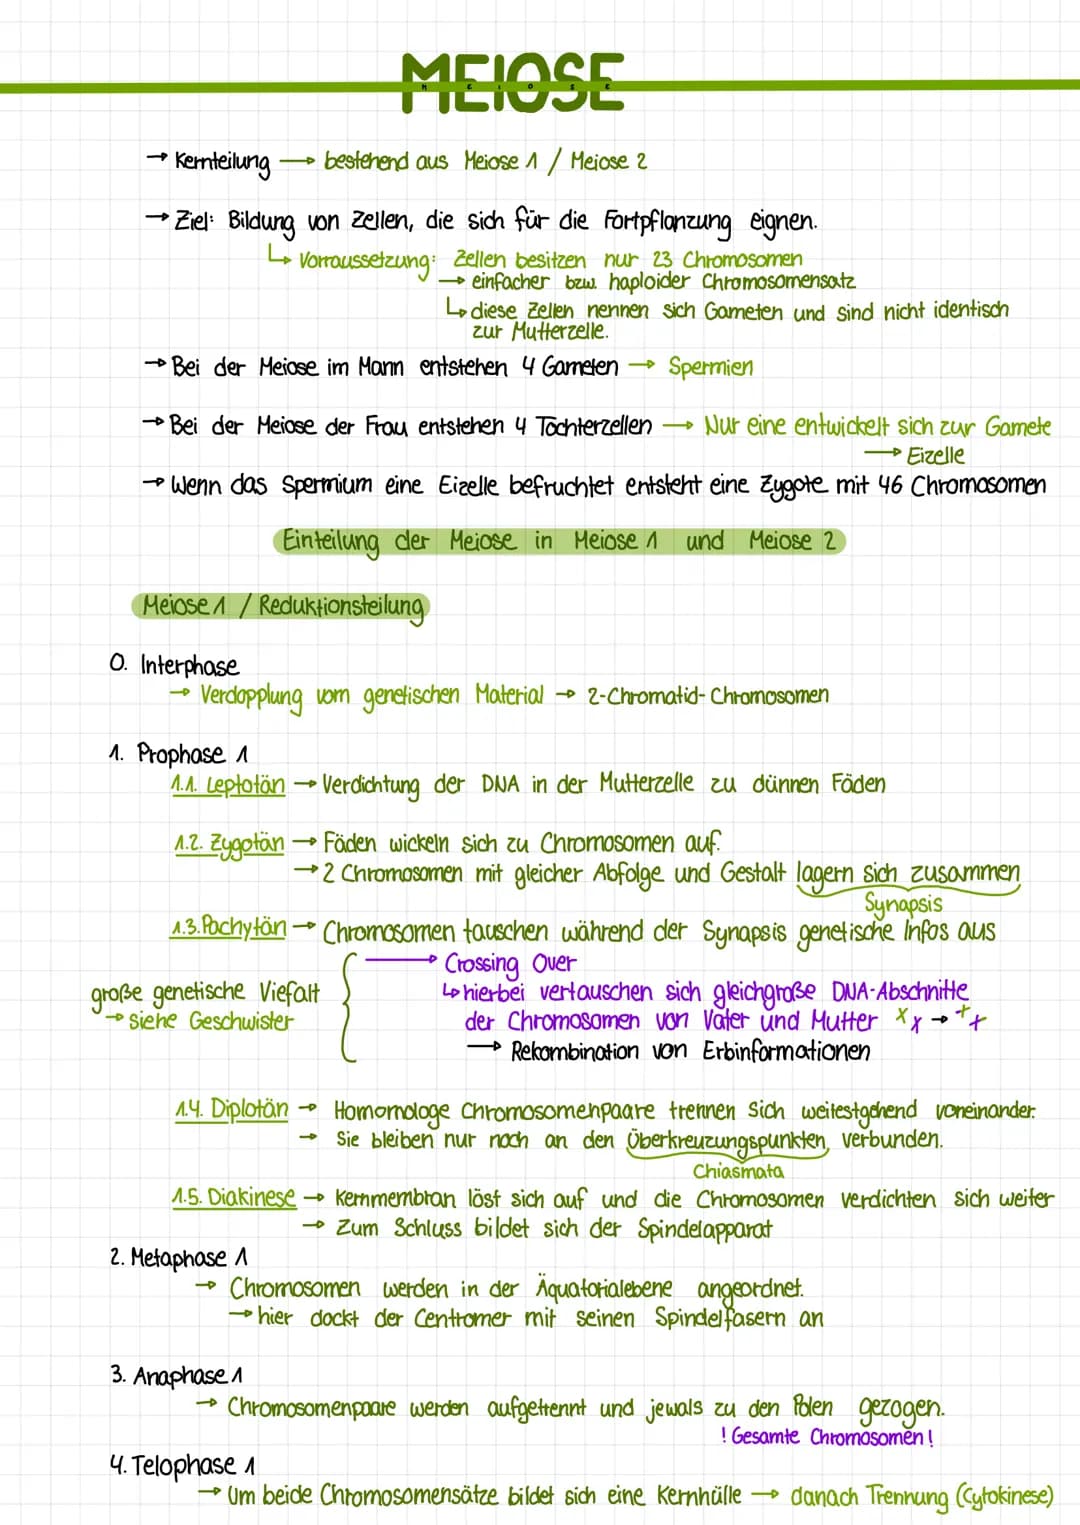 MEIOSE
M E I O S E
→ Kernteilung → bestehend aus Meiose 1 / Meiose 2
→ Ziel: Bildung von Zellen, die sich für die Fortpflanzung eignen.
↳ Vorraussetzung: Zellen besitzen nur 23 Chromosomen
→ einfacher bzw. haploider Chromosomensatz
↳ diese Zellen nennen sich Gameten und sind nicht identisch
zur Mutterzelle.
→ Bei der Meiose im Mann entstehen 4 Gameten → Spermien
→ Bei der Meiose der Frau entstehen 4 Töchterzellen → Nur eine entwickelt sich zur Gamete
→ Eizelle
→ Wenn das Spermium eine Eizelle befruchtet entsteht eine Zygote mit 46 Chromosomen
Einteilung der Meiose in Meiose 1 und Meiose 2
Meiose 1 / Reduktionsteilung
0. Interphase
→ Verdopplung vom genetischen Material → 2-Chromatid-Chromosomen
1. Prophase 1
1.1. Leptotän → Verdichtung der DNA in der Mutterzelle zu dünnen Fäden
1.2. Zygotän → Fäden wickeln sich zu Chromosomen auf.
→ 2 Chromosomen mit gleicher Abfolge und Gestalt lagern sich zusammen
Synapsis
1.3. Pachytän → Chromosomen tauschen während der Synapsis genetische Infos aus
→ Crossing Over
große genetische Viefalt ↳ hierbei vertauschen sich gleichgroße DNA-Abschnitte
→ siehe Geschwister der Chromosomen von Vater und Mutter xx → ++
→ Rekombination von Erbinformationen
1.4. Diplotän → Homomologe Chromosomenpaare trennen sich weitestgehend voneinander.
→ Sie bleiben nur noch an den Überkreuzungspunkten verbunden.
Chiasmata
1.5. Diakinese → Kernmembran löst sich auf und die Chromosomen verdichten sich weiter
→ Zum Schluss bildet sich der Spindelapparat
2. Metaphase 1
→ Chromosomen werden in der Äquatorialebene angeordnet.
→ hier dockt der Centromer mit seinen Spindelfasern an
3. Anaphase 1
→ Chromosomenpaare werden aufgetrennt und jewals zu den Polen gezogen.
! Gesamte Chromosomen !
4. Telophase 1
→ Um beide Chromosomensätze bildet sich eine Kernhülle → danach Trennung (Cytokinese)